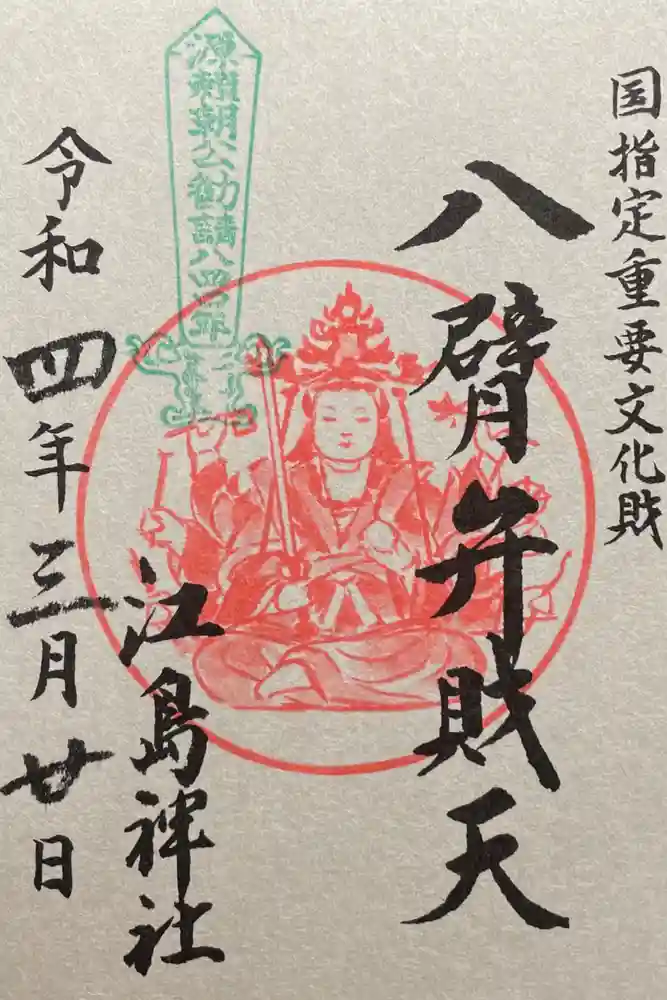 国指定重要文化財
八臂弁財天
源頼朝公勧請八四〇年
江島神社
令和四年三月廿日